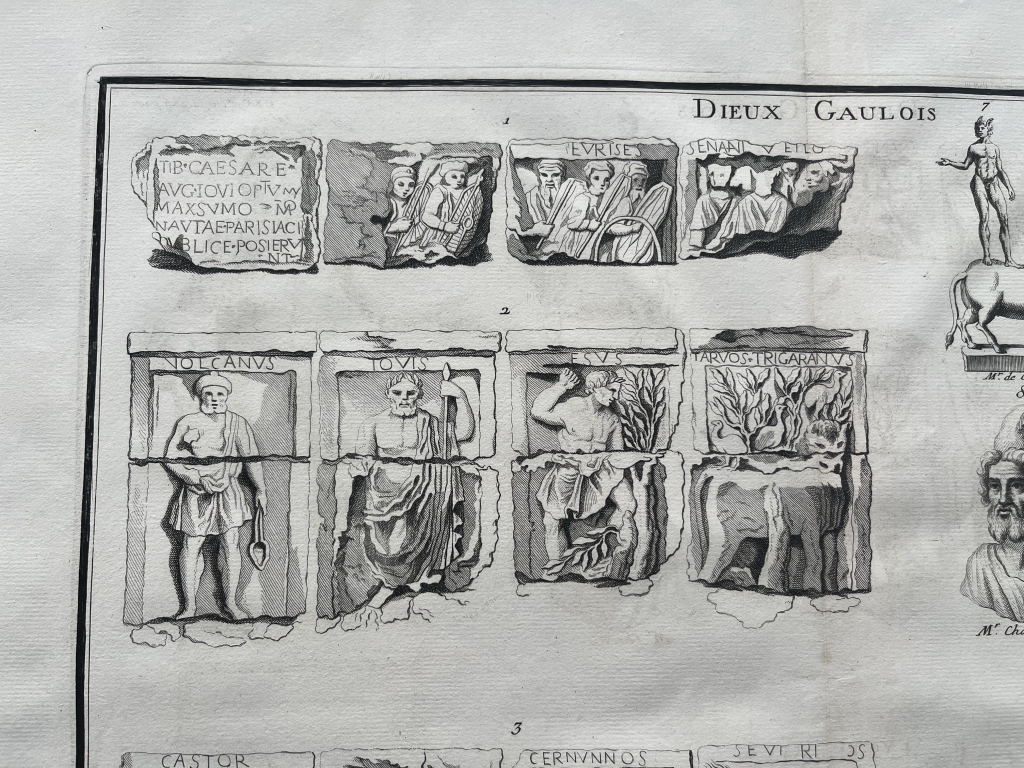 DIEUX GAULOIS
1
7
TIB·CAESARE
AVG·IOVI OPTVM
MAXSVMO
NAVTAE·PARISIACI
BLICE·POSIERV
NT
EVRISES
SENANI V EILO
Mr. de
2
VOLCANVS
IOVIS
ESVS
TARVOS·TRIGARANVS
Mr. Cha
3
CASTOR
CERNVNNOS
SEVI RI OS